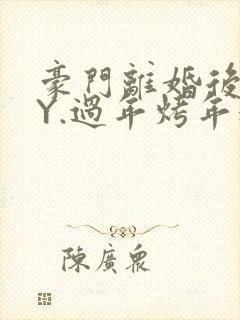 豪門離婚後
Y.過年烤年
陳廣眾